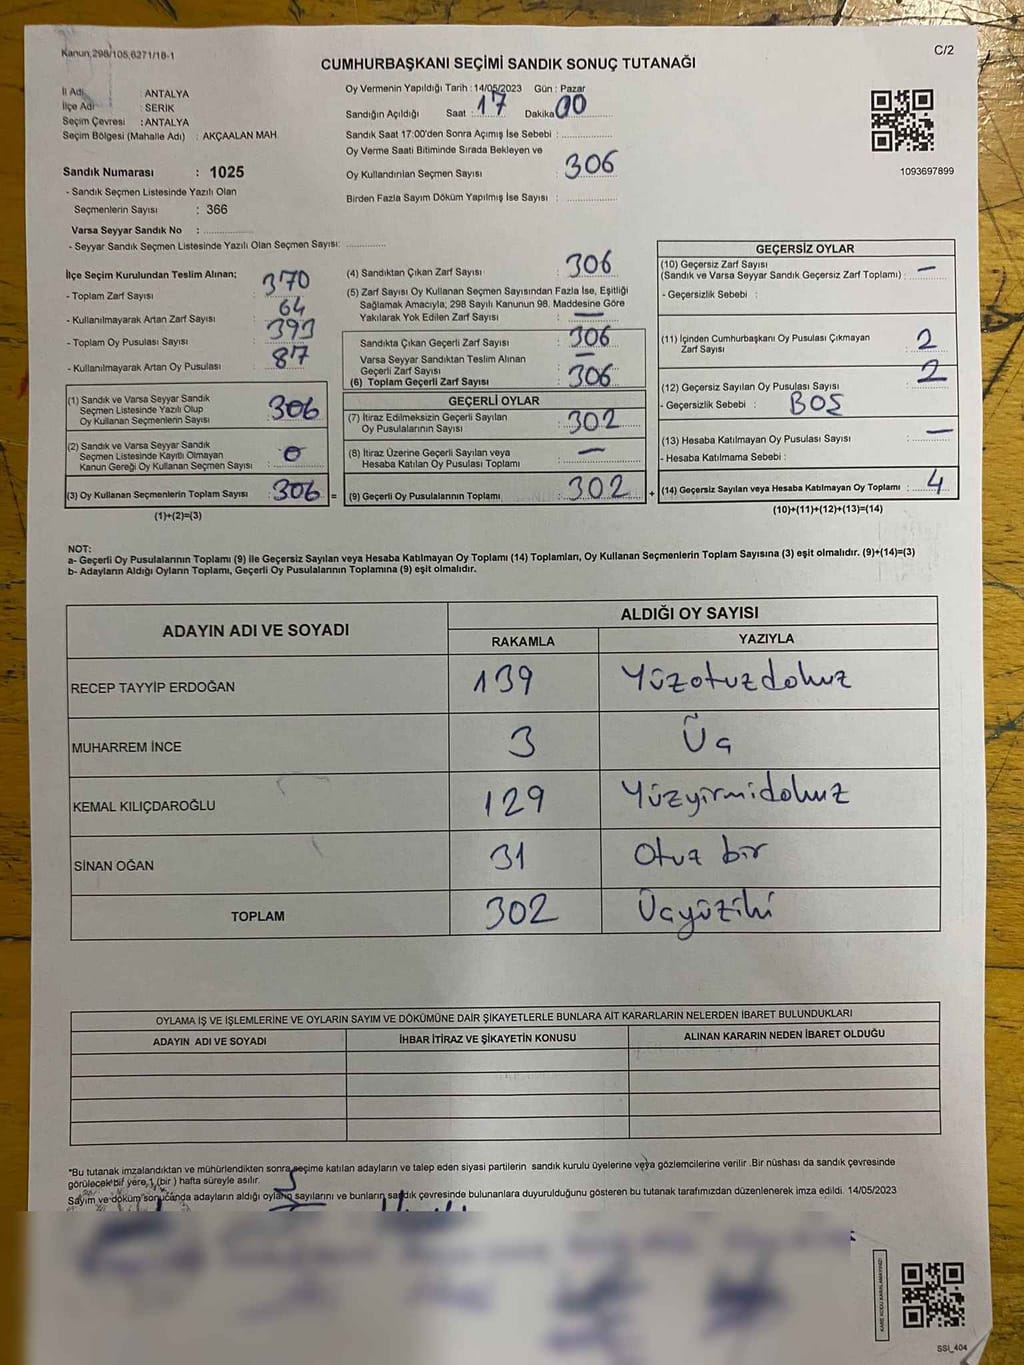 Kanun,298/105,6271/18-1
C/2
CUMHURBAŞKANI SEÇİMİ SANDIK SONUÇ TUTANAĞI
İl Adı : ANTALYA
İlçe Adı : SERİK
Seçim Çevresi : ANTALYA
Seçim Bölgesi (Mahalle Adı) : AKÇAALAN MAH.
Oy Vermenin Yapıldığı Tarih : 14/05/2023 Gün : Pazar
Sandığın Açıldığı Saat : 17 Dakika 00
Sandık Saat 17:00'den Sonra Açımış İse Sebebi :
Oy Verme Saati Bitiminde Sırada Bekleyen ve
Oy Kullandırılan Seçmen Sayısı : 306
Birden Fazla Sayım Döküm Yapılmış İse Sayısı :
1093697899
Sandık Numarası : 1025
- Sandık Seçmen Listesinde Yazılı Olan
Seçmenlerin Sayısı : 366
Varsa Seyyar Sandık No :
- Seyyar Sandık Seçmen Listesinde Yazılı Olan Seçmen Sayısı:
İlçe Seçim Kurulundan Teslim Alınan;
- Toplam Zarf Sayısı : 370
- Kullanılmayarak Artan Zarf Sayısı : 64
- Toplam Oy Pusulası Sayısı : 393
- Kullanılmayarak Artan Oy Pusulası : 87
(1) Sandık ve Varsa Seyyar Sandık
Seçmen Listesinde Yazılı Olup
Oy Kullanan Seçmenlerin Sayısı : 306
(2) Sandık ve Varsa Seyyar Sandık
Seçmen Listesinde Kayıtlı Olmayan
Kanun Gereği Oy Kullanan Seçmen Sayısı : 0
(3) Oy Kullanan Seçmenlerin Toplam Sayısı : 306 =
(1)+(2)=(3)
(4) Sandıktan Çıkan Zarf Sayısı : 306
(5) Zarf Sayısı Oy Kullanan Seçmen Sayısından Fazla İse, Eşitliği
Sağlamak Amacıyla; 298 Sayılı Kanunun 98. Maddesine Göre
Yakılarak Yok Edilen Zarf Sayısı : —
Sandıkta Çıkan Geçerli Zarf Sayısı : 306
Varsa Seyyar Sandıktan Teslim Alınan
Geçerli Zarf Sayısı : —
(6) Toplam Geçerli Zarf Sayısı : 306
GEÇERLİ OYLAR
(7) İtiraz Edilmeksizin Geçerli Sayılan
Oy Pusulalarının Sayısı : 302
(8) İtiraz Üzerine Geçerli Sayılan veya
Hesaba Katılan Oy Pusulası Toplamı : —
(9) Geçerli Oy Pusulalarının Toplamı : 302 +
GEÇERSİZ OYLAR
(10) Geçersiz Zarf Sayısı
(Sandık ve Varsa Seyyar Sandık Geçersiz Zarf Toplamı) : —
- Geçersizlik Sebebi :
(11) İçinden Cumhurbaşkanı Oy Pusulası Çıkmayan
Zarf Sayısı : 2
(12) Geçersiz Sayılan Oy Pusulası Sayısı : 2
- Geçersizlik Sebebi : BOŞ
(13) Hesaba Katılmayan Oy Pusulası Sayısı : —
- Hesaba Katılmama Sebebi :
(14) Geçersiz Sayılan veya Hesaba Katılmayan Oy Toplamı : 4
(10)+(11)+(12)+(13)=(14)
NOT:
a- Geçerli Oy Pusulalarının Toplamı (9) ile Geçersiz Sayılan veya Hesaba Katılmayan Oy Toplamı (14) Toplamları, Oy Kullanan Seçmenlerin Toplam Sayısına (3) eşit olmalıdır. (9)+(14)=(3)
b- Adayların Aldığı Oyların Toplamı, Geçerli Oy Pusulalarının Toplamına (9) eşit olmalıdır.
ADAYIN ADI VE SOYADI
ALDIĞI OY SAYISI
RAKAMLA YAZIYLA
RECEP TAYYİP ERDOĞAN 139 Yüzotuzdokuz
MUHARREM İNCE 3 Üç
KEMAL KILIÇDAROĞLU 129 Yüzyirmidokuz
SİNAN OĞAN 31 Otuz bir
TOPLAM 302 Üçyüziki
OYLAMA İŞ VE İŞLEMLERİNE VE OYLARIN SAYIM VE DÖKÜMÜNE DAİR ŞİKAYETLERLE BUNLARA AİT KARARLARIN NELERDEN İBARET BULUNDUKLARI
ADAYIN ADI VE SOYADI İHBAR İTİRAZ VE ŞİKAYETİN KONUSU ALINAN KARARIN NEDEN İBARET OLDUĞU
*Bu tutanak imzalandıktan ve mühürlendikten sonra seçime katılan adayların ve talep eden siyasi partilerin sandık kurulu üyelerine veya gözlemcilerine verilir .Bir nüshası da sandık çevresinde
görülecek bir yere,1 (bir ) hafta süreyle asılır.
Sayım ve döküm sonucunda adayların aldığı oyların sayılarını ve bunların sandık çevresinde bulunanlara duyurulduğunu gösteren bu tutanak tarafımızdan düzenlenerek imza edildi. 14/05/2023
KARE KODU KARALAMAYINIZ!
SSI_404